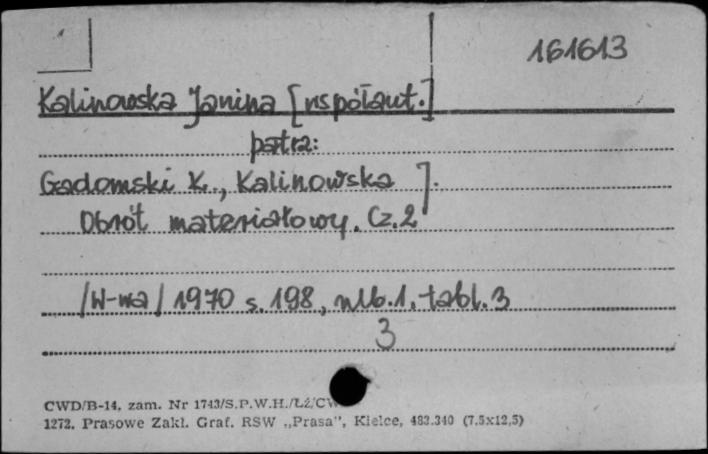 161613
Kalinowska Janina [współaut.]
patrz:
Gadomski K., Kalinowska J.
Obrót materiałowy. Cz.2
/W-wa/ 1970 s. 198, nlb.1, tabl.3
3
CWD/B-14, zam. Nr 1743/S.P.W.H./ŁZ/CW
1272. Prasowe Zakł. Graf. RSW „Prasa”, Kielce, 483.340 (7,5x12,5)